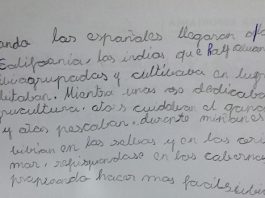 ando las españoles llegaron a
California, los indios que
agrupadas y cultivava en lug
utaban. Mientra unas se dedicaba
gricultura, otros cuidaban el gana
y otros pescaban, durante
bibian en las selvas y en las ori
mar, refugiandose en los cabernas
haser mas facil su